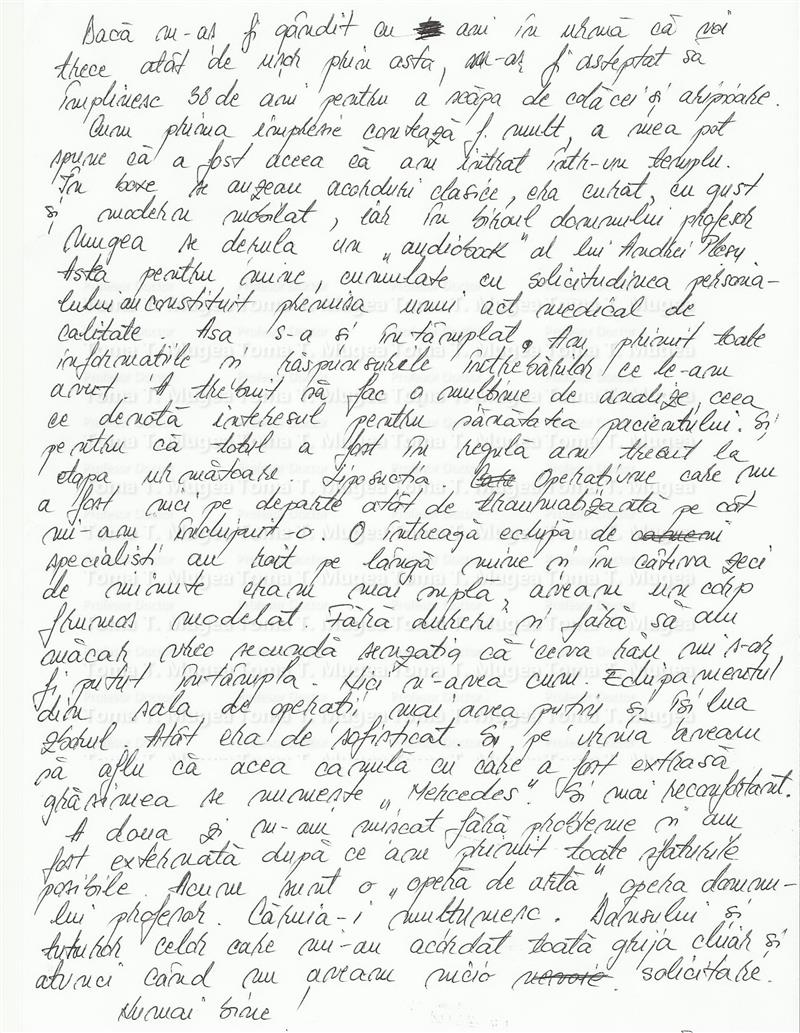 Dacă m-aș fi gândit cu ani în urmă că voi
trece atât de ușor prin asta, n-aș fi așteptat să
împlinesc 38 de ani pentru a scăpa de colăcei și aripioare.
Cum prima impresie contează f. mult, a mea pot
spune că a fost aceea că am intrat într-un templu.
În boxe se auzeau acorduri clasice, era curat, cu gust
și modern mobilat, iar în biroul domnului profesor
Mugea se derula un „audiobook" al lui Andrei Pleșu
Asta pentru mine, cumulate cu solicitudinea persona-
lului au constituit premisa unui act medical de
calitate. Așa s-a și întâmplat. Am primit toate
informațiile și răspunsurile întrebărilor ce le-am
avut. A trebuit să fac o mulțime de analize, ceea
ce denotă interesul pentru sănătatea pacientului. Și
pentru că totul a fost în regulă am trecut la
etapa următoare. Liposucția. Operațiune care nu
a fost nici pe departe atât de traumatizantă pe cât
mi-am închipuit-o. O întreagă echipă de oameni
specialiști au roit pe lângă mine și în câteva zeci
de minute eram mai suplă, aveam un corp
frumos modelat. Fără dureri și fără să am
măcar vreo secundă senzația că ceva rău mi s-ar
fi putut întâmpla. Nici n-avea cum. Echipamentul
din sala de operații mai avea puțin și își lua
zborul. Atât era de sofisticat. Și pe urmă aveam
să aflu că acea canulă cu care a fost extrasă
grăsimea se numește „Mercedes". Și mai reconfortant.
A doua zi m-am mișcat fără probleme și am
fost externată după ce am primit toate sfaturile
posibile. Acum sunt o „operă de artă" opera domnu-
lui profesor. Căruia-i mulțumesc. Dansului și
tuturor celor care mi-au acordat toată grija chiar și
atunci când nu aveam nicio nevoie solicitare.
Numai bine !
Toma T. Mugea
Profesor Doctor